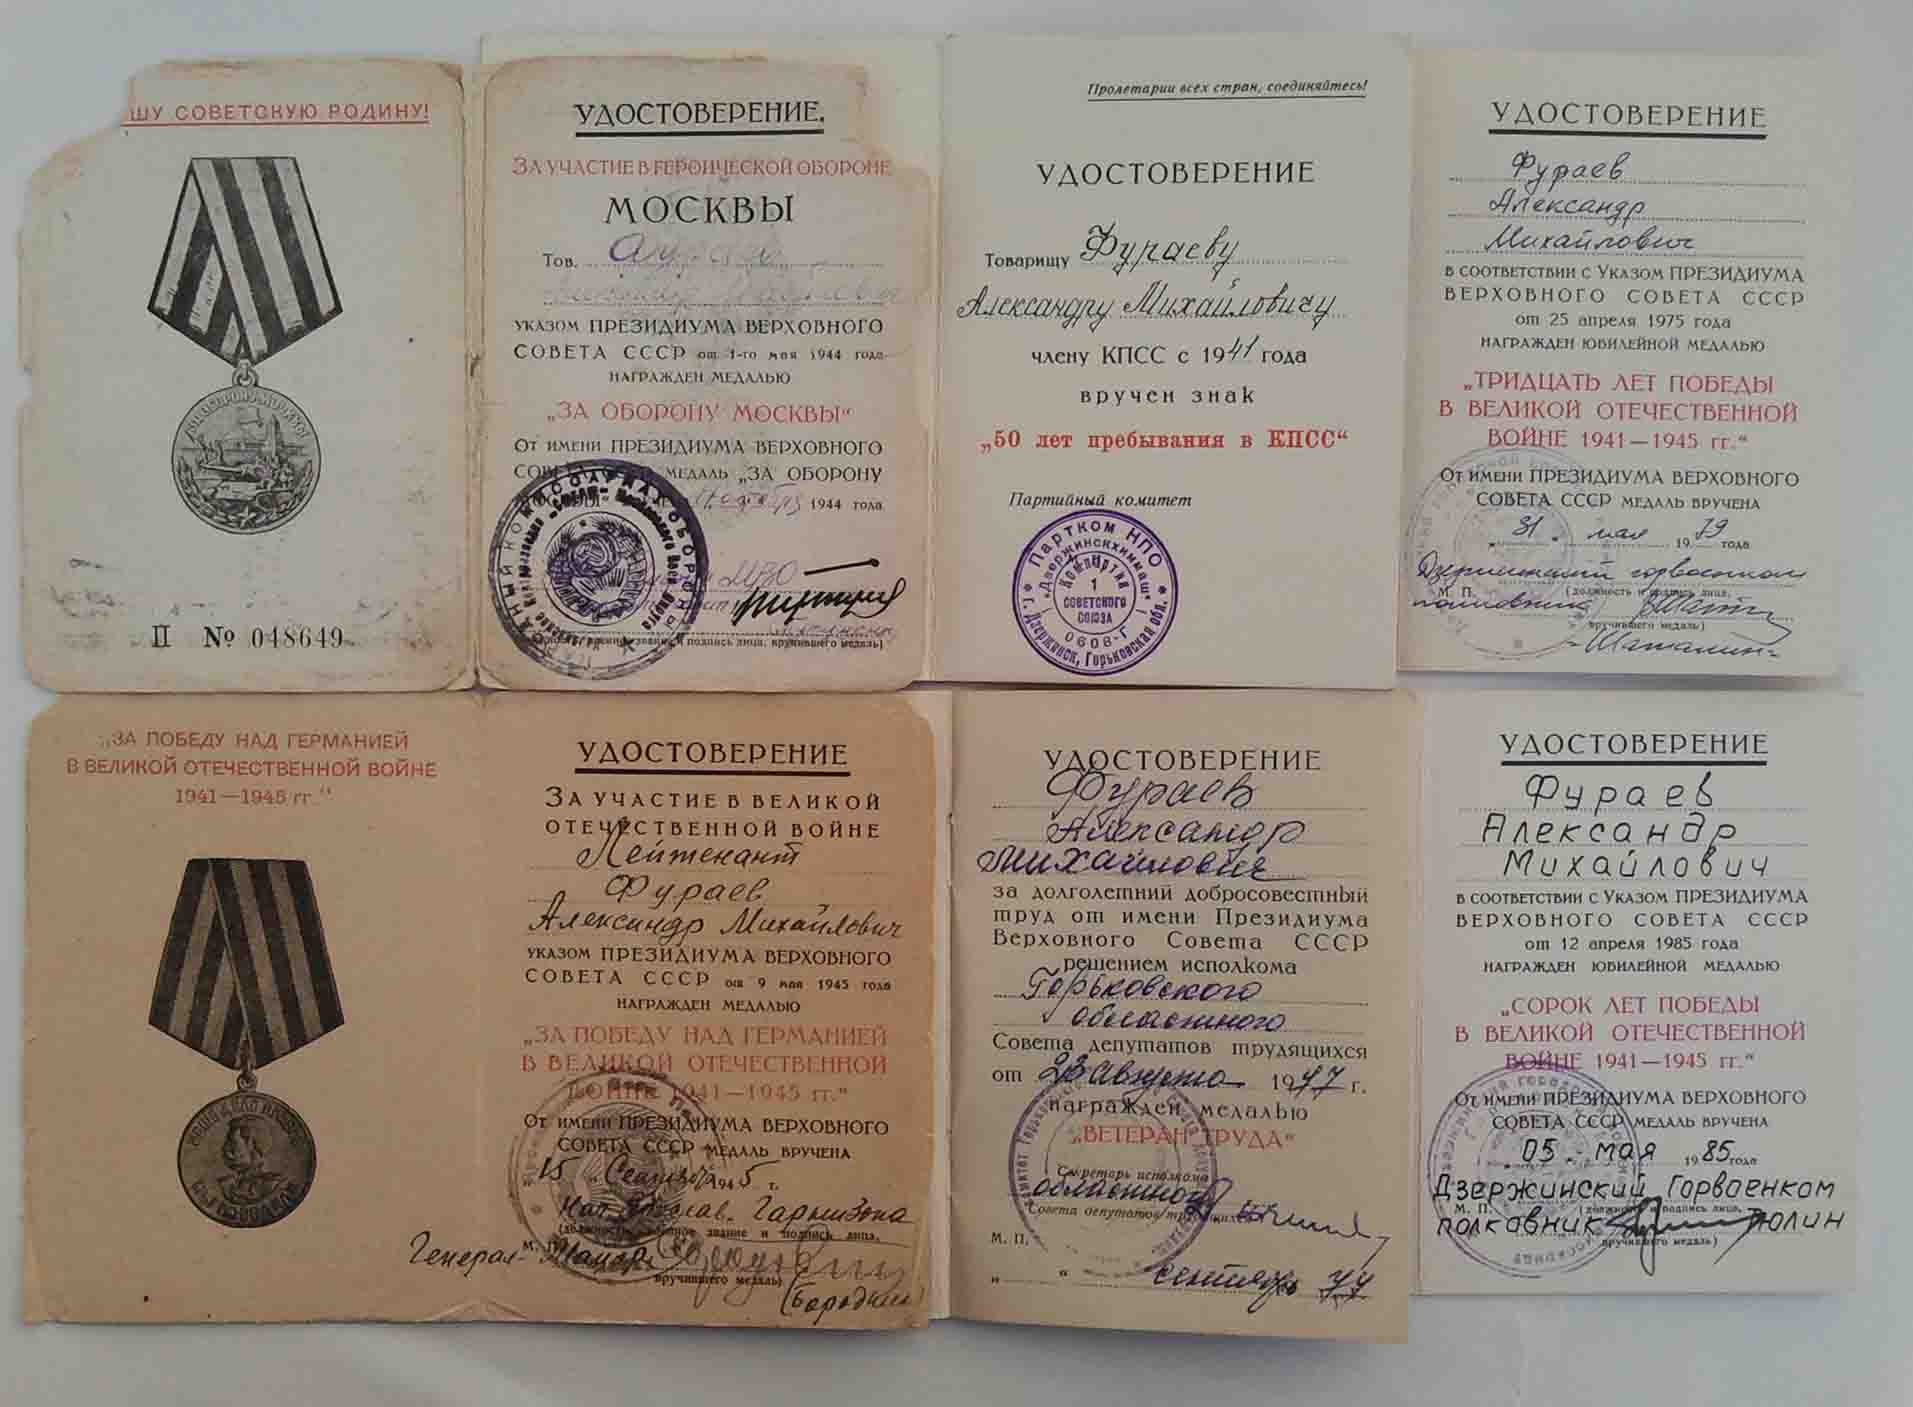 ШУ СОВЕТСКУЮ РОДИНУ!
П № 048649
УДОСТОВЕРЕНИЕ.
ЗА УЧАСТИЕ В ГЕРОИЧЕСКОЙ ОБОРОНЕ
МОСКВЫ
Тов.
УКАЗОМ ПРЕЗИДИУМА ВЕРХОВНОГО
СОВЕТА СССР от 1-го мая 1944 года
НАГРАЖДЕН МЕДАЛЬЮ
„ЗА ОБОРОНУ МОСКВЫ“
От имени ПРЕЗИДИУМА ВЕРХОВНОГО
СОВЕТА МЕДАЛЬ „ЗА ОБОРОНУ
1944 года
звание и подпись лица, вручившего медаль)
Пролетарии всех стран, соединяйтесь!
УДОСТОВЕРЕНИЕ
Товарищу Фураеву
Александру Михайловичу
члену КПСС с 1941 года
вручен знак
„50 лет пребывания в КПСС“
Партийный комитет
Партком НПО „Дзержинскхиммаш“
г. Дзержинск, Горьковская обл.
Компартия
1
СОВЕТСКОГО
СОЮЗА
0608-Г
УДОСТОВЕРЕНИЕ
Фураев
Александр
Михайлович
в соответствии с Указом ПРЕЗИДИУМА
ВЕРХОВНОГО СОВЕТА СССР
от 25 апреля 1975 года
НАГРАЖДЕН ЮБИЛЕЙНОЙ МЕДАЛЬЮ
„ТРИДЦАТЬ ЛЕТ ПОБЕДЫ
В ВЕЛИКОЙ ОТЕЧЕСТВЕННОЙ
ВОЙНЕ 1941—1945 гг.“
От имени ПРЕЗИДИУМА ВЕРХОВНОГО
СОВЕТА СССР МЕДАЛЬ ВРУЧЕНА
31 мая 1979 года
Дзержинский горвоенком
М. П. (должность и подпись лица,
полковник
вручившего медаль)
„ЗА ПОБЕДУ НАД ГЕРМАНИЕЙ
В ВЕЛИКОЙ ОТЕЧЕСТВЕННОЙ ВОЙНЕ
1941—1945 гг.“
УДОСТОВЕРЕНИЕ
ЗА УЧАСТИЕ В ВЕЛИКОЙ
ОТЕЧЕСТВЕННОЙ ВОЙНЕ
Лейтенант
Фураев
Александр Михайлович
УКАЗОМ ПРЕЗИДИУМА ВЕРХОВНОГО
СОВЕТА СССР от 9 мая 1945 года
НАГРАЖДЕН МЕДАЛЬЮ
„ЗА ПОБЕДУ НАД ГЕРМАНИЕЙ
В ВЕЛИКОЙ ОТЕЧЕСТВЕННОЙ
ВОЙНЕ 1941—1945 гг.“
От имени ПРЕЗИДИУМА ВЕРХОВНОГО
СОВЕТА СССР МЕДАЛЬ ВРУЧЕНА
15 Сентября 1945 г.
Гарнизона
(должность, звание и подпись лица,
Генерал-Майор
вручившего медаль)
УДОСТОВЕРЕНИЕ
Фураев
Александр
Михайлович
за долголетний добросовестный
труд от имени Президиума
Верховного Совета СССР
решением исполкома
Горьковского
областного
Совета депутатов трудящихся
от 23 августа 1977 г.
награжден медалью
„ВЕТЕРАН ТРУДА“
Секретарь исполкома
областного
Совета депутатов трудящихся
М. П.
„ “ сентябрь 77
УДОСТОВЕРЕНИЕ
Фураев
Александр
Михайлович
в соответствии с Указом ПРЕЗИДИУМА
ВЕРХОВНОГО СОВЕТА СССР
от 12 апреля 1985 года
НАГРАЖДЕН ЮБИЛЕЙНОЙ МЕДАЛЬЮ
„СОРОК ЛЕТ ПОБЕДЫ
В ВЕЛИКОЙ ОТЕЧЕСТВЕННОЙ
ВОЙНЕ 1941—1945 гг.“
От имени ПРЕЗИДИУМА ВЕРХОВНОГО
СОВЕТА СССР МЕДАЛЬ ВРУЧЕНА
05 мая 1985 года
Дзержинский Горвоенком
М. П. (должность и подпись лица,
полковник
вручившего медаль)